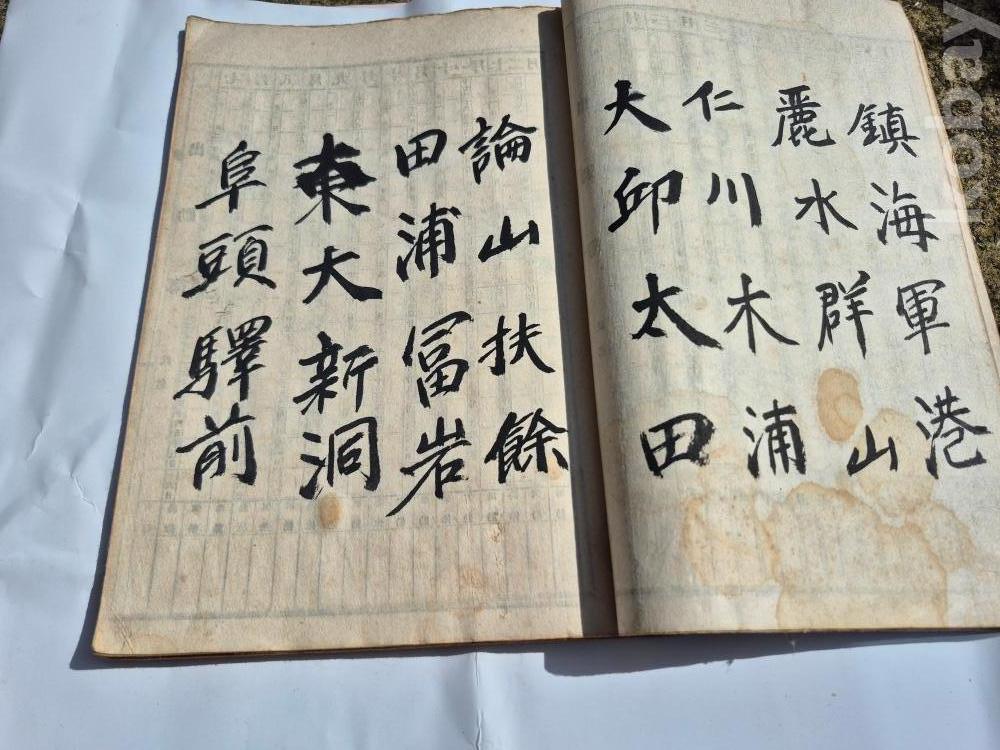 鎮海軍港
麗水群山
仁川木浦
大邱太田
論山扶餘
田浦冨岩
東大新洞
阜頭驛前